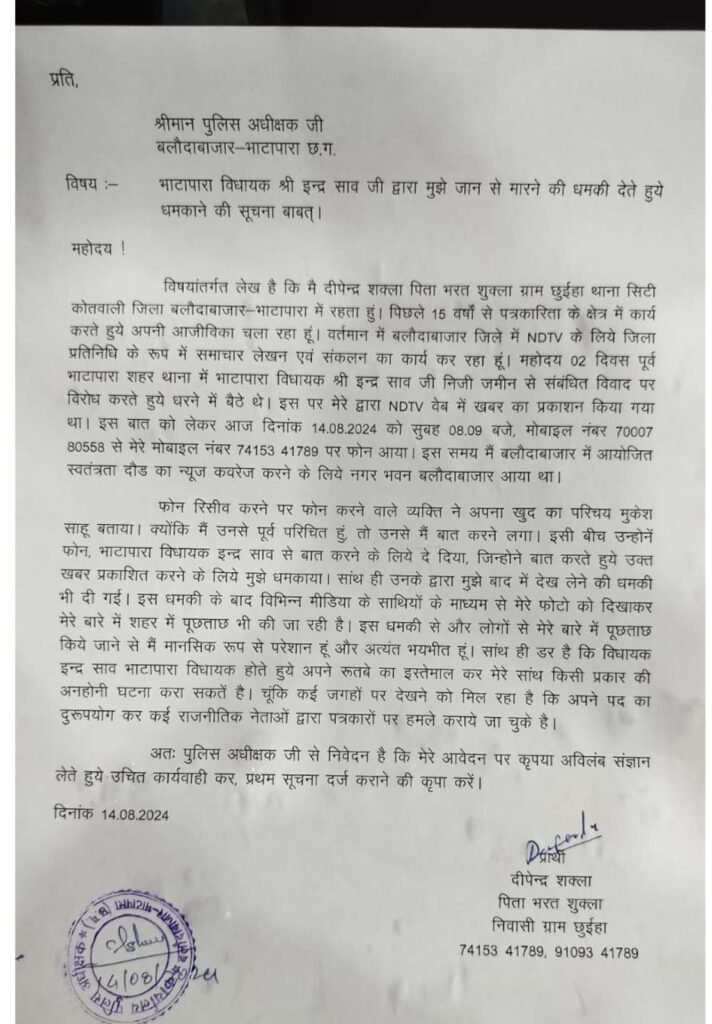 प्रति,
श्रीमान पुलिस अधीक्षक जी
बलौदाबाजार–भाटापारा छ.ग.
विषय :– भाटापारा विधायक श्री इन्द्र साव जी द्वारा मुझे जान से मारने की धमकी देते हुये
धमकाने की सूचना बाबत्।
महोदय !
विषयांतर्गत लेख है कि मै दीपेन्द्र शक्ला पिता भरत शुक्ला ग्राम छुईहा थाना सिटी
कोतवाली जिला बलौदाबाजार–भाटापारा में रहता हुं। पिछले 15 वर्षो से पत्रकारिता के क्षेत्र में कार्य
करते हुये अपनी आजीविका चला रहा हूं। वर्तमान में बलौदाबाजार जिले में NDTV के लिये जिला
प्रतिनिधि के रूप में समाचार लेखन एवं संकलन का कार्य कर रहा हूं। महोदय 02 दिवस पूर्व
भाटापारा शहर थाना में भाटापारा विधायक श्री इन्द्र साव जी निजी जमीन से संबंधित विवाद पर
विरोध करते हुये धरने में बैठे थे। इस पर मेरे द्वारा NDTV वेब में खबर का प्रकाशन किया गया
था। इस बात को लेकर आज दिनांक 14.08.2024 को सुबह 08.09 बजे, मोबाइल नंबर 70007
80558 से मेरे मोबाइल नंबर 74153 41789 पर फोन आया। इस समय मैं बलौदाबाजार में आयोजित
स्वतंत्रता दौड का न्यूज कवरेज करने के लिये नगर भवन बलौदाबाजार आया था।
फोन रिसीव करने पर फोन करने वाले व्यक्ति ने अपना खुद का परिचय मुकेश
साहू बताया। क्योंकि मैं उनसे पूर्व परिचित हुं, तो उनसे मैं बात करने लगा। इसी बीच उन्होनें
फोन, भाटापारा विधायक इन्द्र साव से बात करने के लिये दे दिया, जिन्होने बात करते हुये उक्त
खबर प्रकाशित करने के लिये मुझे धमकाया। सांथ ही उनके द्वारा मुझे बाद में देख लेने की धमकी
भी दी गई। इस धमकी के बाद विभिन्न मीडिया के साथियों के माध्यम से मेरे फोटो को दिखाकर
मेरे बारे में शहर में पूछताछ भी की जा रही है। इस धमकी से और लोगों से मेरे बारे में पूछताछ
किये जाने से मैं मानसिक रूप से परेशान हूं और अत्यंत भयभीत हूं। सांथ ही डर है कि विधायक
इन्द्र साव भाटापारा विधायक होते हुये अपने रूतबे का इस्तेमाल कर मेरे सांथ किसी प्रकार की
अनहोनी घटना करा सकतें है। चूंकि कई जगहों पर देखने को मिल रहा है कि अपने पद का
दुरूपयोग कर कई राजनीतिक नेताओं द्वारा पत्रकारों पर हमले कराये जा चुके है।
अतः पुलिस अधीक्षक जी से निवेदन है कि मेरे आवेदन पर कृपया अविलंब संज्ञान
लेते हुये उचित कार्यवाही कर, प्रथम सूचना दर्ज कराने की कृपा करें।
दिनांक 14.08.2024
प्रार्थी
दीपेन्द्र शक्ला
पिता भरत शुक्ला
निवासी ग्राम छुईहा
74153 41789, 91093 41789